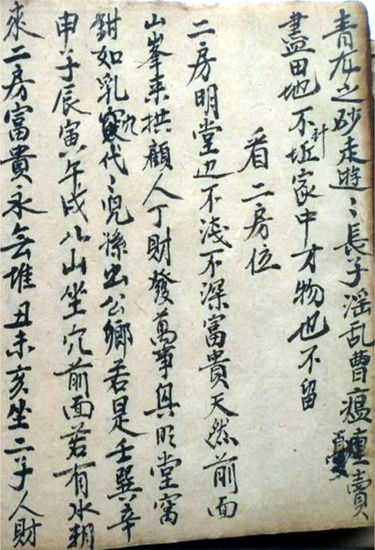 青龙之砂走遊〻長子淫乱曹瘟㾄賣
盡田地不计坵家中才物也不留
看二房位
二房明堂边不浅不深富貴天然前面
山峯来拱顧人丁財發萬事具明堂窩
鉗如乳穴代〻児孫出公卿若是壬巽辛
申子辰寅午戌八山坐穴前面若有水朝
來二房富貴永無堆丑未亥坐二子人財